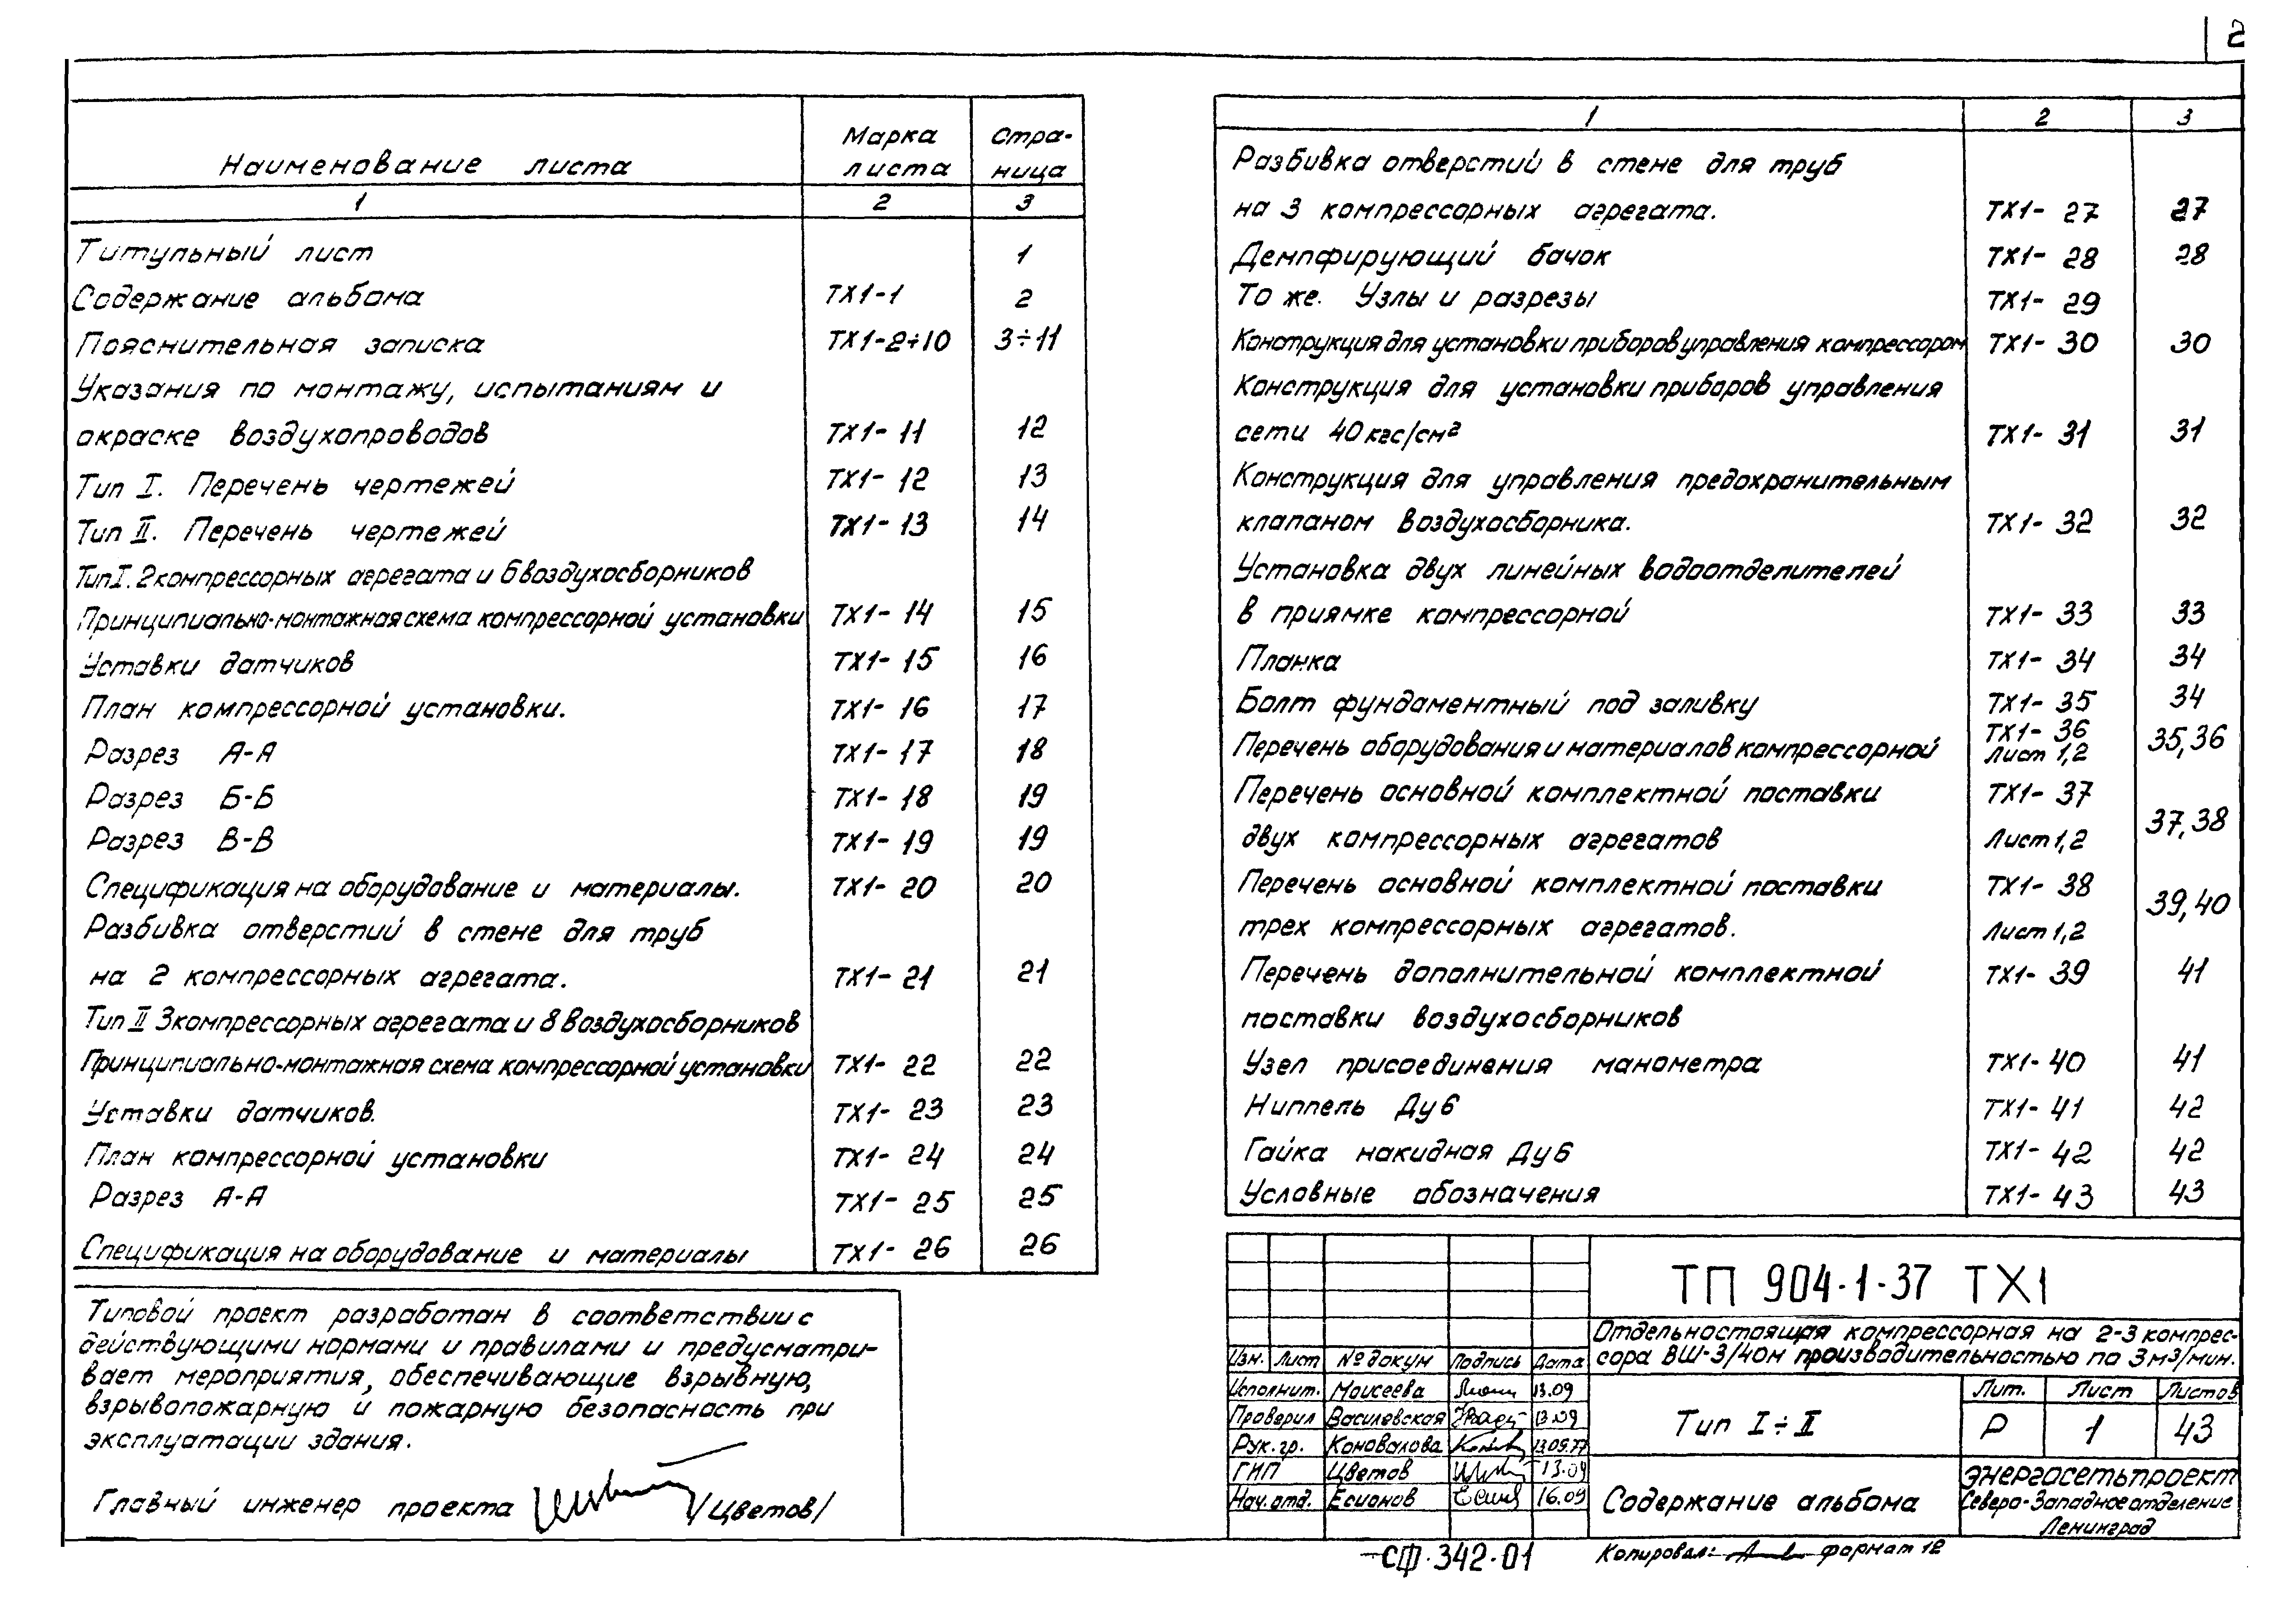 2
Наименование листа Марка листа Стра-ница
1 2 3
Титульный лист 1
Содержание альбома ТХ1-1 2
Пояснительная записка ТХ1-2÷10 3÷11
Указания по монтажу, испытаниям и
окраске воздухопроводов ТХ1-11 12
Тип I. Перечень чертежей ТХ1-12 13
Тип II. Перечень чертежей ТХ1-13 14
Тип I. 2 компрессорных агрегата и 6 воздухосборников
Принципиально-монтажная схема компрессорной установки ТХ1-14 15
Уставки датчиков ТХ1-15 16
План компрессорной установки. ТХ1-16 17
Разрез А-А ТХ1-17 18
Разрез Б-Б ТХ1-18 19
Разрез В-В ТХ1-19 19
Спецификация на оборудование и материалы. ТХ1-20 20
Разбивка отверстий в стене для труб
на 2 компрессорных агрегата. ТХ1-21 21
Тип II 3 компрессорных агрегата и 8 воздухосборников
Принципиально-монтажная схема компрессорной установки ТХ1-22 22
Уставки датчиков. ТХ1-23 23
План компрессорной установки ТХ1-24 24
Разрез А-А ТХ1-25 25
Спецификация на оборудование и материалы ТХ1-26 26
Типовой проект разработан в соответствии с
действующими нормами и правилами и предусматри-
вает мероприятия, обеспечивающие взрывную,
взрывопожарную и пожарную безопасность при
эксплуатации здания.
Главный инженер проекта /Цветов/
1 2 3
Разбивка отверстий в стене для труб
на 3 компрессорных агрегата. ТХ1-27 27
Демпфирующий бачок ТХ1-28 28
То же. Узлы и разрезы ТХ1-29
Конструкция для установки приборов управления компрессором ТХ1-30 30
Конструкция для установки приборов управления
сети 40 кгс/см² ТХ1-31 31
Конструкция для управления предохранительным
клапаном воздухосборника. ТХ1-32 32
Установка двух линейных водоотделителей
в приямке компрессорной ТХ1-33 33
Планка ТХ1-34 34
Болт фундаментный под заливку ТХ1-35 34
Перечень оборудования и материалов компрессорной ТХ1-36 Лист 1,2 35,36
Перечень основной комплектной поставки ТХ1-37
двух компрессорных агрегатов Лист 1,2 37,38
Перечень основной комплектной поставки ТХ1-38
трех компрессорных агрегатов. Лист 1,2 39,40
Перечень дополнительной комплектной ТХ1-39 41
поставки воздухосборников
Узел присоединения манометра ТХ1-40 41
Ниппель Ду6 ТХ1-41 42
Гайка накидная Ду6 ТХ1-42 42
Условные обозначения ТХ1-43 43
ТП 904-1-37 ТХ1
Отдельностоящая компрессорная на 2-3 компрес-
сора ВШ-3/40м производительностью по 3м³/мин.
Изм. Лист № докум Подпись Дата
Исполнит. Моисеева 13.09
Проверил Василевская 13.09
Рук. гр. Коновалова 13.09.77
ГИП Цветов 13.09
Нач. отд. Есионов 16.09
Тип I÷II
Лит. Лист Листов
Р 1 43
Содержание альбома
Энергосетьпроект
Северо-Западное отделение
Ленинград
СФ-342-01
Копировал: формат 12